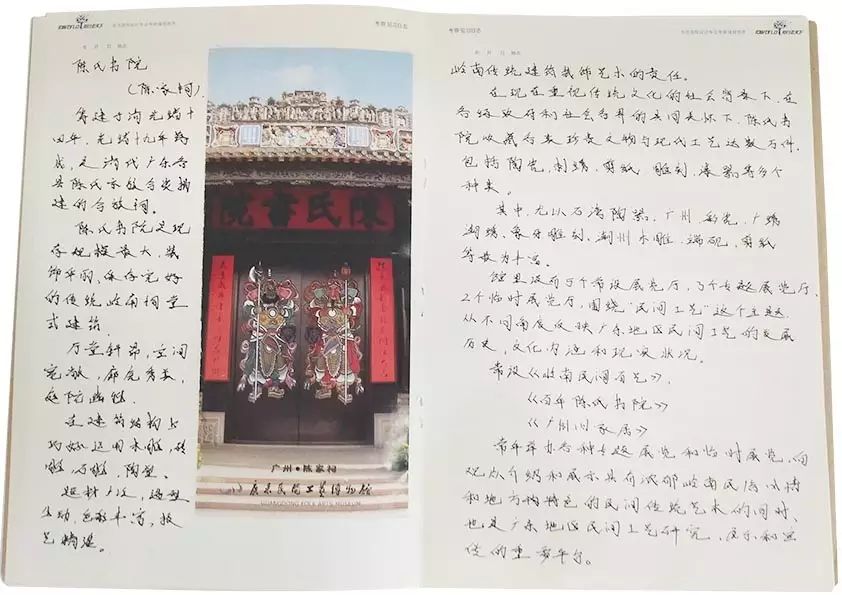 考察见习日志
年 月 日 地点
陈氏书院
(陈家祠)
筹建于清光绪十
四年,光绪十九年落
成,是清代广东各
县陈氏宗族合资捐
建的合族祠。
陈氏书院是现
存规模最大、装
饰华丽、保存完好
的传统岭南祠堂
式建筑。
厅堂轩昂,空间
宽敞,廊庑秀美,
庭院幽雅。
在建筑结构上
巧妙运用木雕,砖
雕,石雕,陶塑。
题材广泛,造型
生动,色彩丰富,技
艺精湛。
陈氏書院
广州·陈家祠
广东民间工艺博物馆
GUANGDONG FOLK ARTS MUSEUM
考察见习日志
年 月 日 地点
岭南传统建筑装饰艺术的责任。
在现在重视传统文化的社会背景下,在
各级政府和社会各界的共同关怀下,陈氏书
院收藏各类珍贵文物与现代工艺达数万件,
包括陶瓷,刺绣,剪纸,雕刻,漆器等多个
种类。
其中,尤以石湾陶器,广州彩瓷,广绣
潮绣、象牙雕刻、潮州木雕,端砚,剪纸
等最为丰富。
馆里设有5个常设展览厅、7个专题展览厅、
2个临时展览厅,围绕“民间工艺”这个主题,
从不同角度反映广东地区民间工艺的发展
历史,文化内涵和现状状况。
常设《岭南民间百艺》,
《百年陈氏书院》
《广州旧家居》
常年举办各种专题展览和临时展览,向
观众介绍和展示具有浓郁岭南民俗风情
和地方特色的民间传统艺术的同时、
也是广东地区民间工艺研究、展示和宣
传的重要平台。